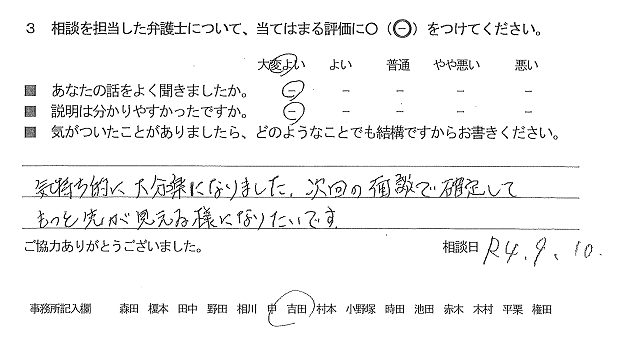 3 相談を担当した弁護士について、当てはまる評価に〇(⊖)をつけてください。
大変よい よい 普通 やや悪い 悪い
■ あなたの話をよく聞きましたか。 － － － － －
■ 説明は分かりやすかったですか。 － － － － －
■ 気がついたことがありましたら、どのようなことでも結構ですからお書きください。
気持ち的に大分楽になりました。次回の面談で確定して
もっと先が見える様になりたいです。
ご協力ありがとうございました。 相談日 R4.9.10.
事務所記入欄 森田 榎本 田中 野田 相川 申 吉田 村本 小野塚 時田 池田 赤木 木村 平栗 権田